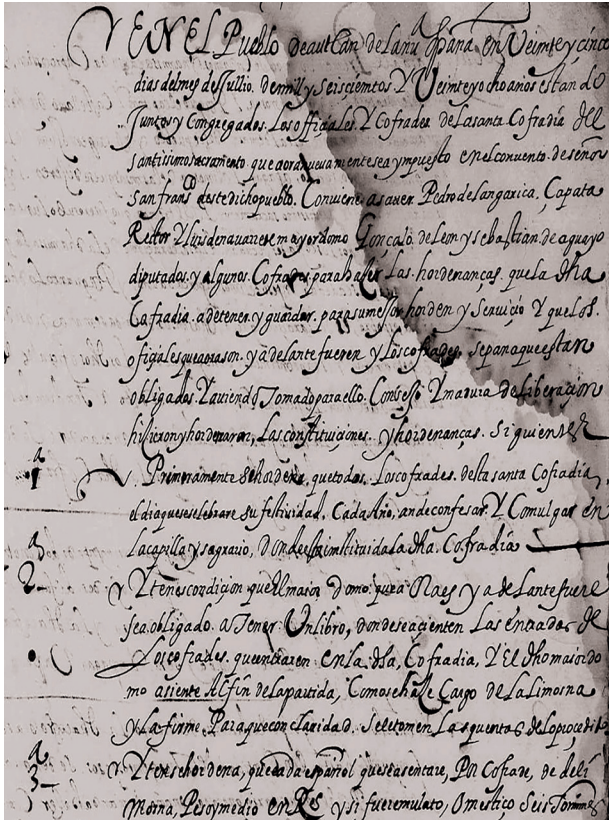 EN EL Pueblo de autlan de la nu^a españa en Veimte y cinco
dias del mes de Jullio. de mill y seisçiemtos Y Veinte y ocho años estando
Juntos y Congregados. Los offiçiales Y Cofrades de La santa Cofradia del
santissimo sacramento. que aora nuevamente sea ympuesto en el convento. de señor
san fran^co deste dicho pueblo. Conviene a saver Pedro de sangarica. Capata
Retor Y luis de navarrete mayordomo Gonçalo de Leon y sebastian. de aguayo
diputados. y algunos. Cofrades para haçer Las. hordenanças. que la dha
Cafradia. a de tener. y guardar. para su mejor horden y Serviçio Y que los.
ofiçiales que aora son. y adelante fueren y los cofrades. sepan a que estan
obligados. Y aviendo Tomado para ello. Consejo Y madura deliberaçion
hiçieron y hordenaron, Las constituiçiones. y hordenanças. Siguientes
1 Primeramente se hordena, que todos. Los cofrades. desta santa Cofradia,
el dia que se selebrare su festividad. Cada Año, an de confesar. Y Comulgar en
La capilla y sagrario, donde esta imstituida La dha. Cofradia
2 Yten es condiçion que El maior domo que aora es y adelante fuere
sea obligado. a Tener Un libro, donde se açienten Las entradas de
Los cofrades. que entraren en La dha, Cofradia, Y El dho maiordo
mo asiente Al fin de La partida, Como se haçe Cargo de La Limosna
y La firme. Para que con claridad. se le tomen Las quentas de Lo proçedido
3 Yten se hordena, que cada español que se asentare, Por Cofrade, de de li
mosna, Peso y medio en Rs y si fuere mulato, O mestiço Seis Tomines